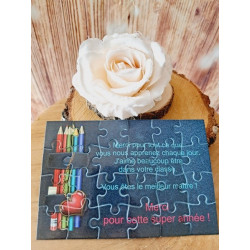 Merci pour tout ce que
vous nous apprenez chaque jour.
J'aime beaucoup être
dans votre classe.
Vous êtes le meilleur maître !
Merci
pour cette super année !